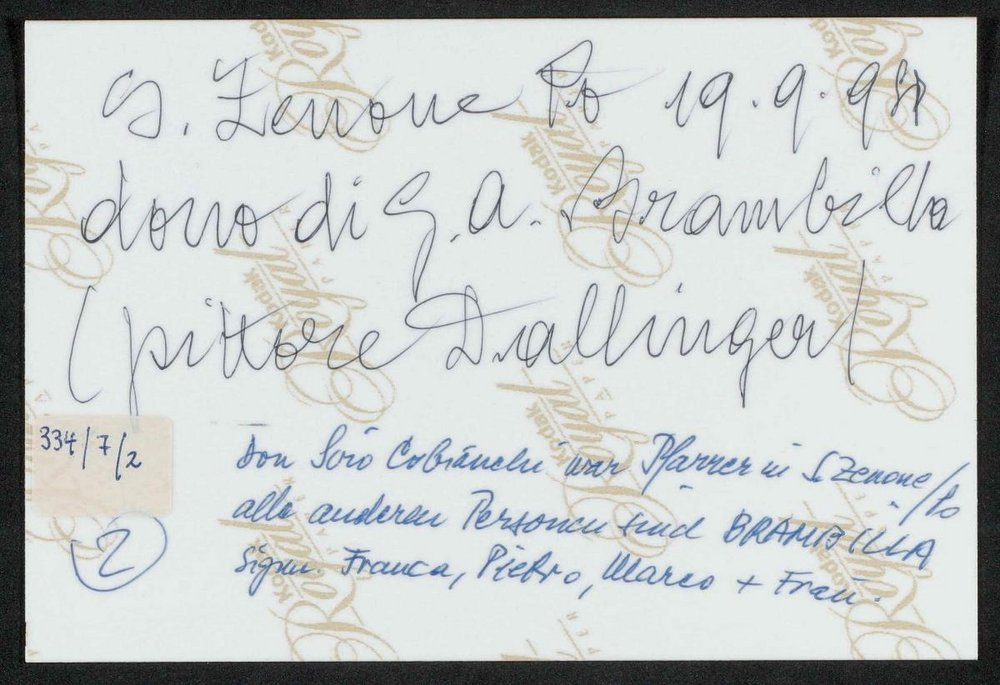 S. Zenone Po 19.9.98
dono di G.A. Brambilla
(pittore Dallinger)
334/7/2
Don Siro Cobianchi war Pfarrer in S. Zenone/Po
alle anderen Personen sind BRAMBILLA
2
Signn. Franca, Pietro, Marco + Frau.
Kodak
Royal
PAPER